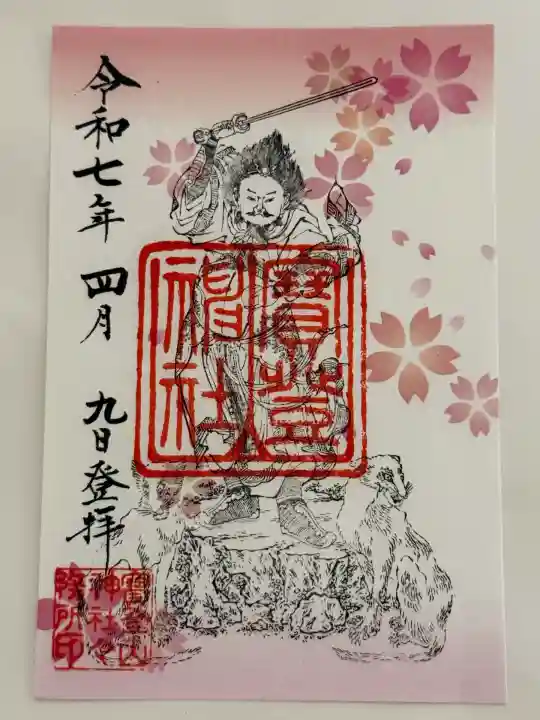 寶登
神社
令和七年 四月 九日登拝
寶登山
神社々
務所印